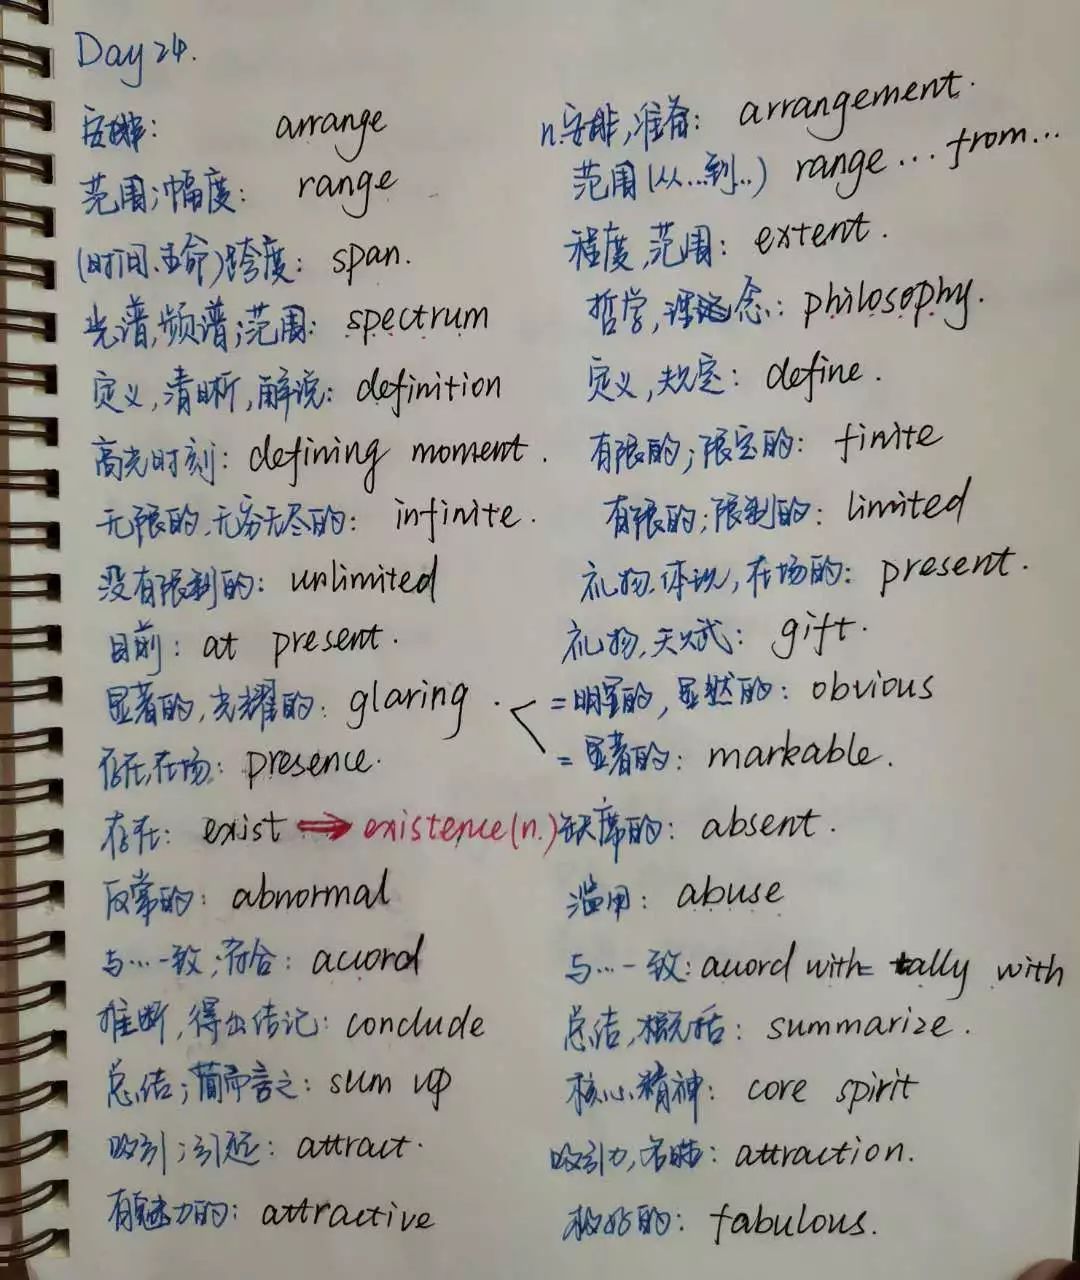 Day 24.
安排: arrange
n.安排,准备: arrangement.
范围;幅度: range
范围(从...到..) range...from...
(时间.生命)跨度: span.
程度,范围: extent.
光谱,频谱;范围: spectrum
哲学,理念: philosophy.
定义,清晰,解说: definition
定义,规定: define.
高光时刻: defining moment.
有限的;限定的: finite
无限的,无穷无尽的: infinite.
有限的;限制的: limited
没有限制的: unlimited
礼物.体现,在场的: present.
目前: at present.
礼物,天赋: gift.
显著的,光耀的: glaring.
=明显的,显然的: obvious
存在,在场: presence.
=显著的: markable.
存在: exist ⇒ existence(n.)
缺席的: absent.
反常的: abnormal
滥用: abuse
与...一致;符合: accord
与...一致: accord with = tally with
推断,得出结论: conclude
总结,概括: summarize.
总结;简而言之: sum up
核心精神: core spirit
吸引;引起: attract.
吸引力, attraction.
有魅力的: attractive
极好的: fabulous.